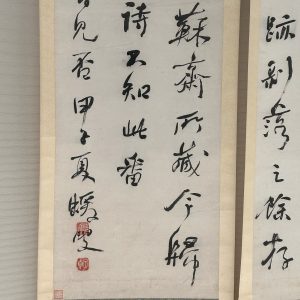 跡剥落之餘存
蘇齋所藏今歸
詩不知此番
見否甲子夏蝯叟